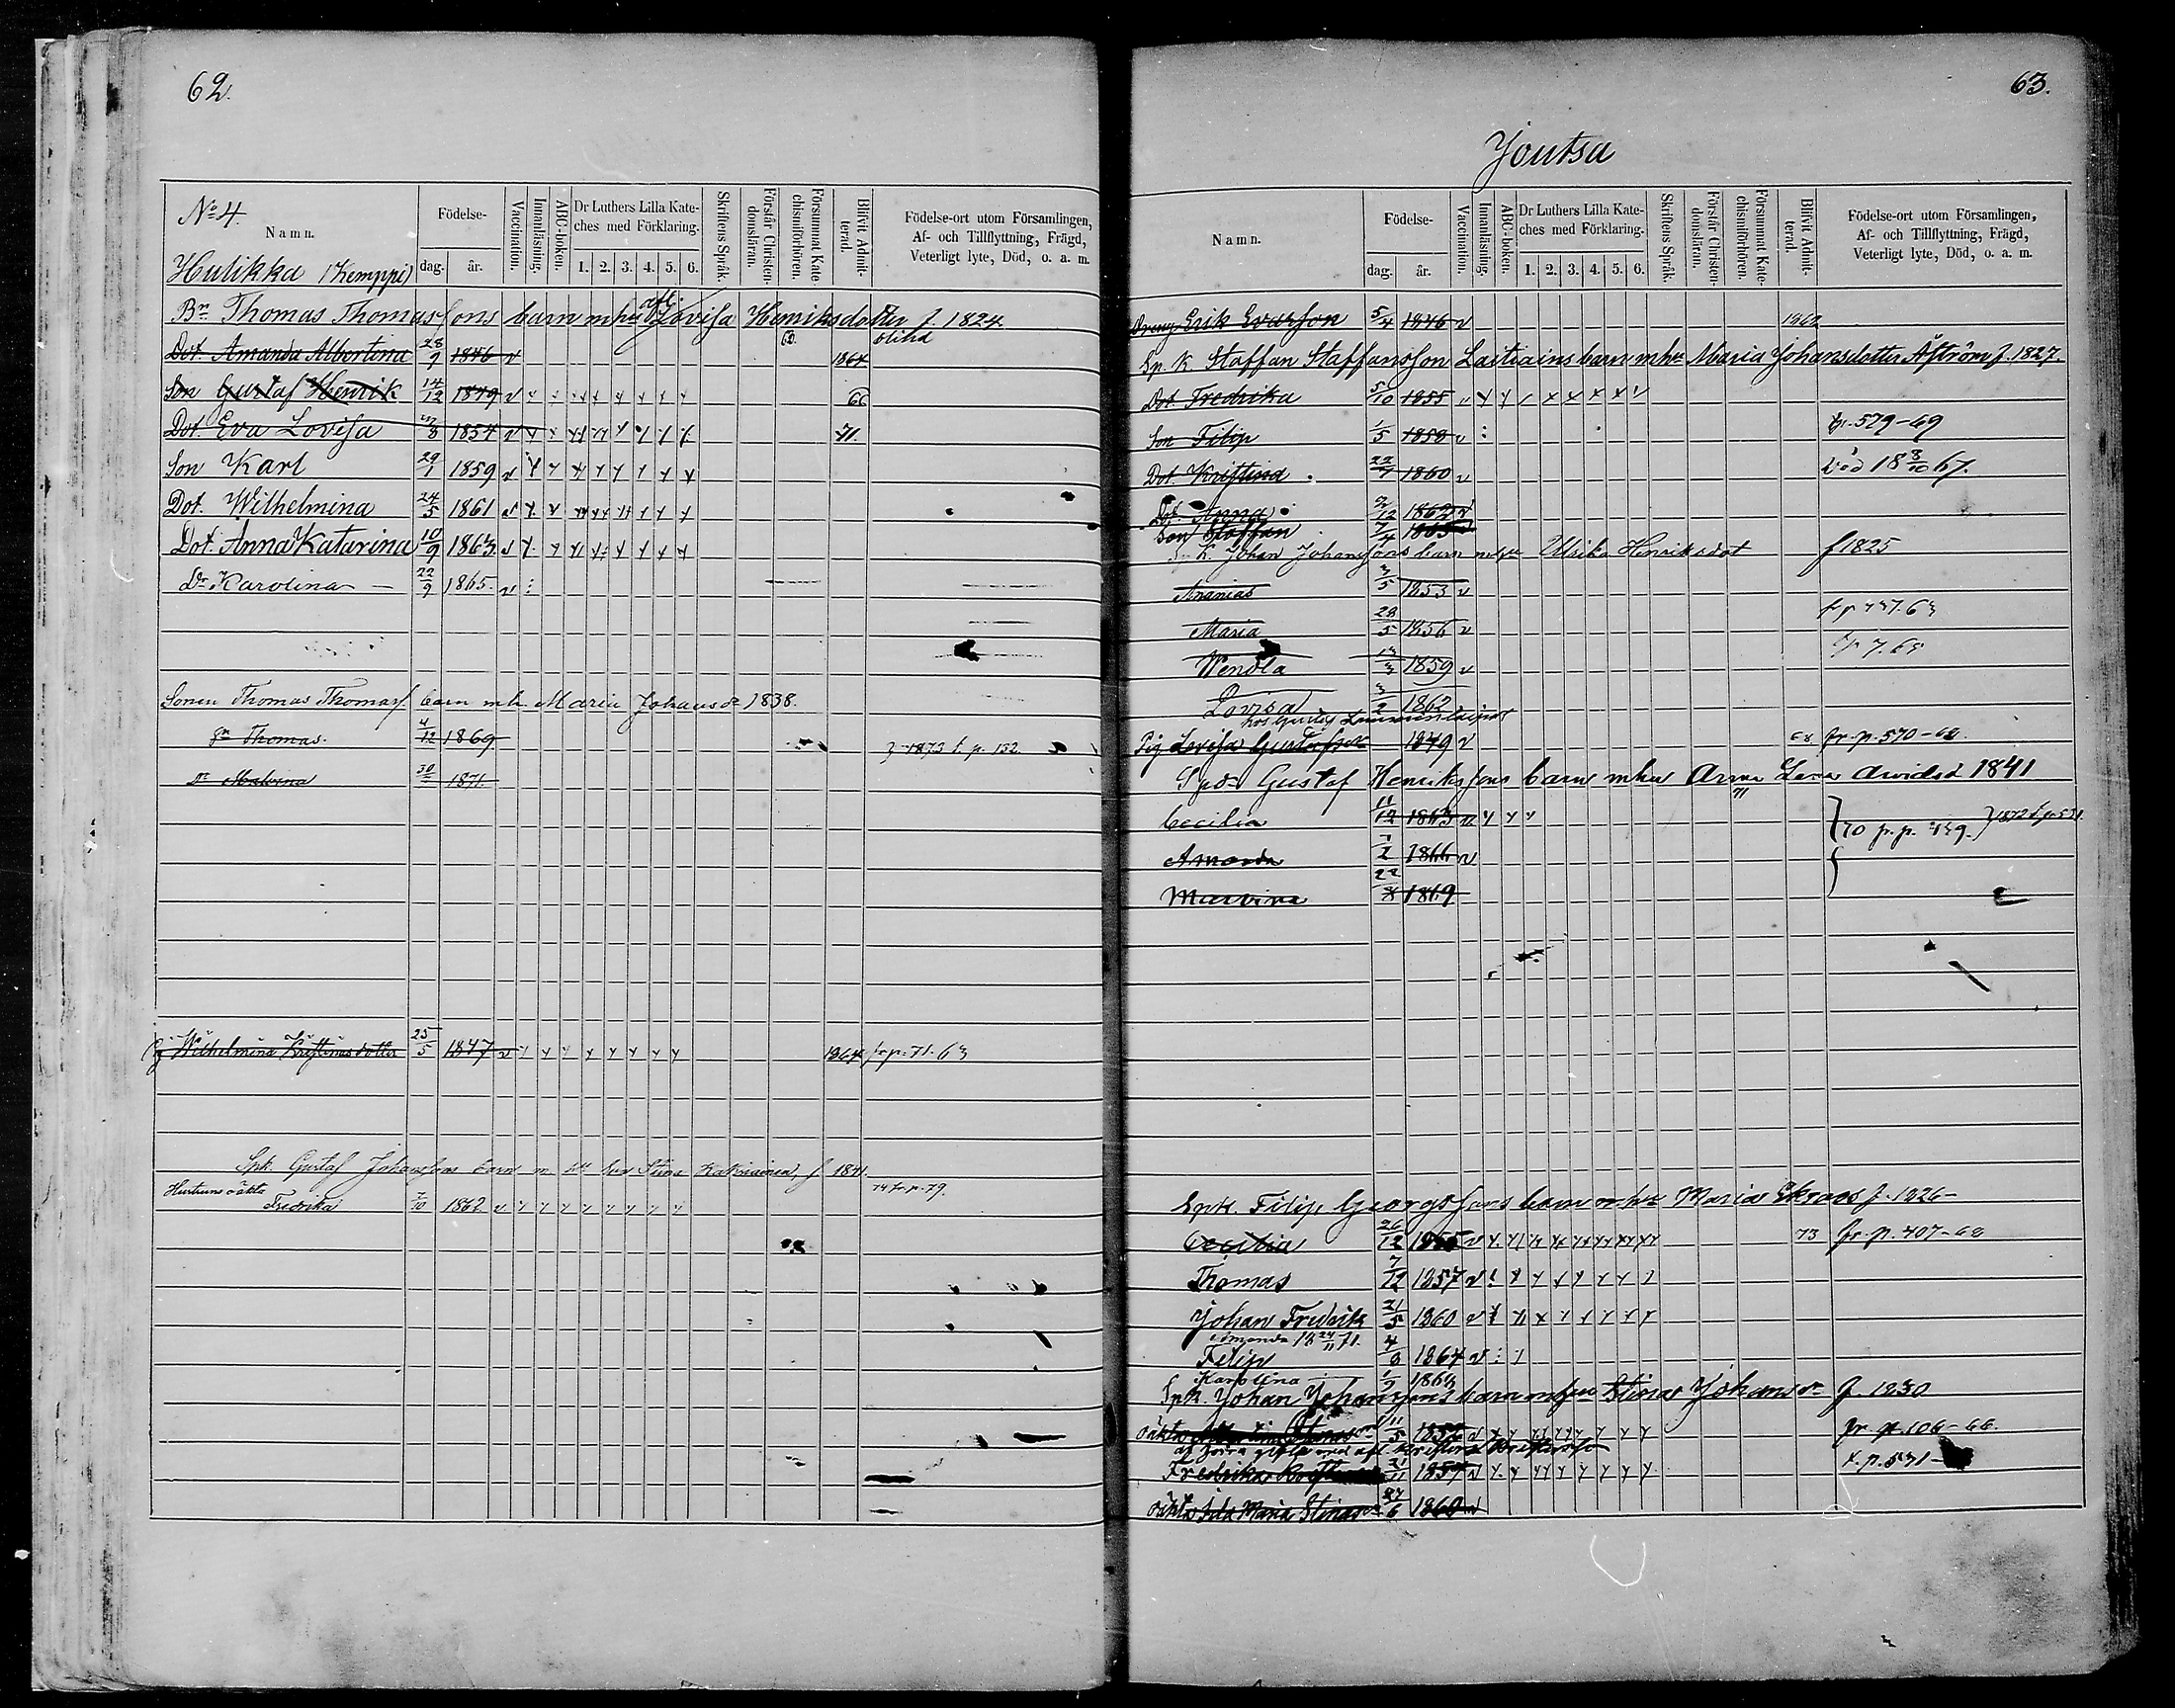 62.
No 4.
Namn.
Födelse-
dag.
år.
Vaccination.
Innanläsning.
ABC-boken.
Dr Luthers Lilla Kate-
ches med Förklaring.
1. 2. 3. 4. 5. 6.
Skriftens Språk.
Förstår Christen-
domsläran.
Försummat Kate-
chismiförhören.
Blifvit Admit-
terad.
Födelse-ort utom Församlingen,
Af- och Tillflyttning, Frägd,
Veterligt lyte, Död, o. a. m.
Hulikka (Kemppi)
Bn Thomas Thomassons barn m hu Lovisa Henriksdotter f. 1824
Dot. Amanda Albertina 28/9 1846 v 1864
Son Gustaf Henrik 14/12 1849 v 66
Dot. Eva Lovisa 1854 v 71.
Son Karl 29/1 1859 v
Dot. Wilhelmina 24/5 1861 v
Dot. Anna Katarina 10/9 1863 v
Dr Karolina 22/9 1865 v
Sonen Thomas Thomass. barn m h. Maria Johansdr 1838.
Thomas 4/12 1869 1873 t. p. 132
Dr Malvina 30 1871
Wilhelmina Kristinas dotter 25/5 1847 v 1864 fr p. 71. 63
Spk. Gustaf Johanssons barn m hu Stina f 1841.
Hustruns oäkta
Fredrika 7/10 1862 v 74 fr. p. 79.
63.
Joutsa
Namn.
Födelse-
dag.
år.
Vaccination.
Innanläsning.
ABC-boken.
Dr Luthers Lilla Kate-
ches med Förklaring.
1. 2. 3. 4. 5. 6.
Skriftens Språk.
Förstår Christen-
domsläran.
Försummat Kate-
chismiförhören.
Blifvit Admit-
terad.
Födelse-ort utom Församlingen,
Af- och Tillflyttning, Frägd,
Veterligt lyte, Död, o. a. m.
Dreng Erik Evasson 5/4 1846 v 1862
Sp. k. Staffan Staffansson Laitiains barn m hu Maria Johansdotter Åström f. 1827.
Dot. Fredrika 5/10 1855
Son Filip 1/5 1858 v fr. 579-69
Dot. Kristina 22/7 1860 v Död 18 8/10 67.
Dot. Anna 2/12 1862 v
Son Staffan 7/4 1865
Sp K. Johan Johanssons barn m hu Ulrika Henriksdot f 1825
Ananias 3/5 1853 v
Maria 28/5 1856 v
Wendla 13/3 1859 v
Lovisa 3/2 1862
Pig Lovisa Gustafsdr 1849 v 68 fr. p. 570-68.
Gustaf Henrikssons barn m hu Anna Lena Arvidsd 1841
Cecilia 11/12 1863 70 p. p. 1872 t. p. 531.
Amanda 1866 v
Malvina 22 1869
Spk. Filip Georgssons barn m hu Maria Ekroos f. 1826-
Cecilia 26/12 1855 v 73 fr. p. 407-68
Thomas 7/12 1857 v
Johan Fredrik 21/5 1860 v
Amanda 18 24/11 71.
Filip 4/8 1864 v
Karolina 1/9 1868
Spk. Johan Johanssons barn m hu Stina Johansdr f 1830
oäkta 11/5 1852 v fr p. 106-66.
Fredrika 21/11 1857 v t. p. 531-
oäkta Ida Maria Stinasdr 27/6 1860 v